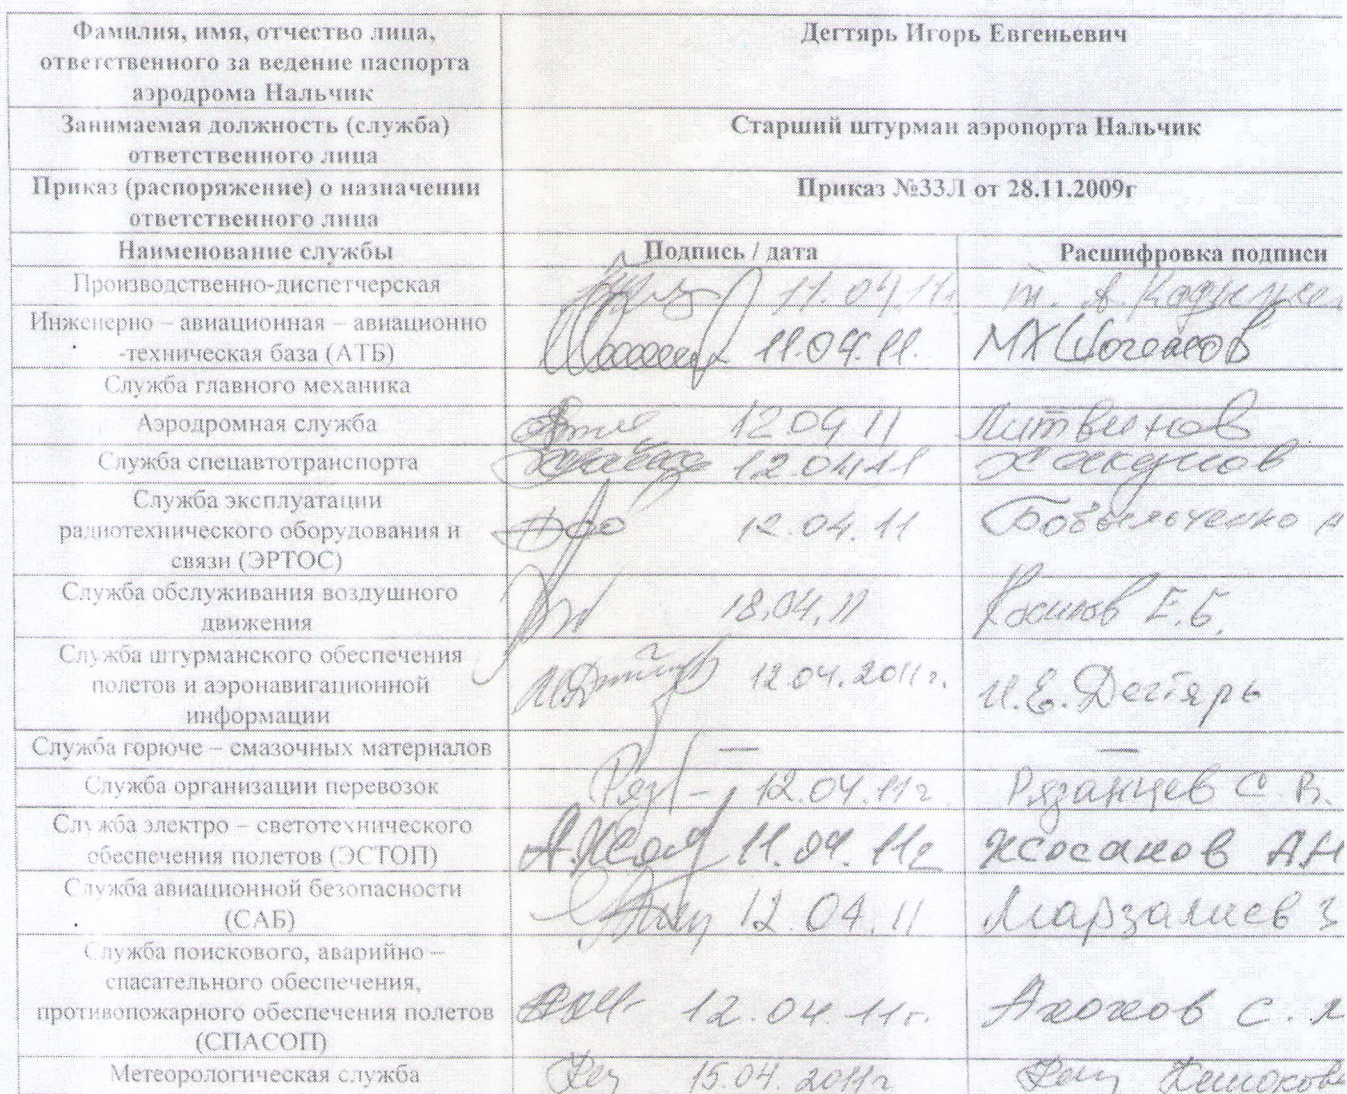 Фамилия, имя, отчество лица,
ответственного за ведение паспорта
аэродрома Нальчик
Дегтярь Игорь Евгеньевич
Занимаемая должность (служба)
ответственного лица
Старший штурман аэропорта Нальчик
Приказ (распоряжение) о назначении
ответственного лица
Приказ №33Л от 28.11.2009г
Наименование службы
Подпись / дата
Расшифровка подписи
Производственно-диспетчерская
11.04.11г.
Инженерно – авиационная – авиационно
-техническая база (АТБ)
11.04.11.
МХ Шогенов
Служба главного механика
Аэродромная служба
12.04.11
Литвинов
Служба спецавтотранспорта
12.04.11
Хакунов
Служба эксплуатации
радиотехнического оборудования и
связи (ЭРТОС)
12.04.11
Служба обслуживания воздушного
движения
18.04.11
Е.Б.
Служба штурманского обеспечения
полетов и аэронавигационной
информации
12.04.2011г.
И.Е. Дегтярь
Служба горюче – смазочных материалов
—
—
Служба организации перевозок
12.04.11г
Рязанцев С.В.
Служба электро – светотехнического
обеспечения полетов (ЭСТОП)
11.04.11г
Служба авиационной безопасности
(САБ)
12.04.11
Служба поискового, аварийно –
спасательного обеспечения,
противопожарного обеспечения полетов
(СПАСОП)
12.04.11г.
Метеорологическая служба
15.04.2011г